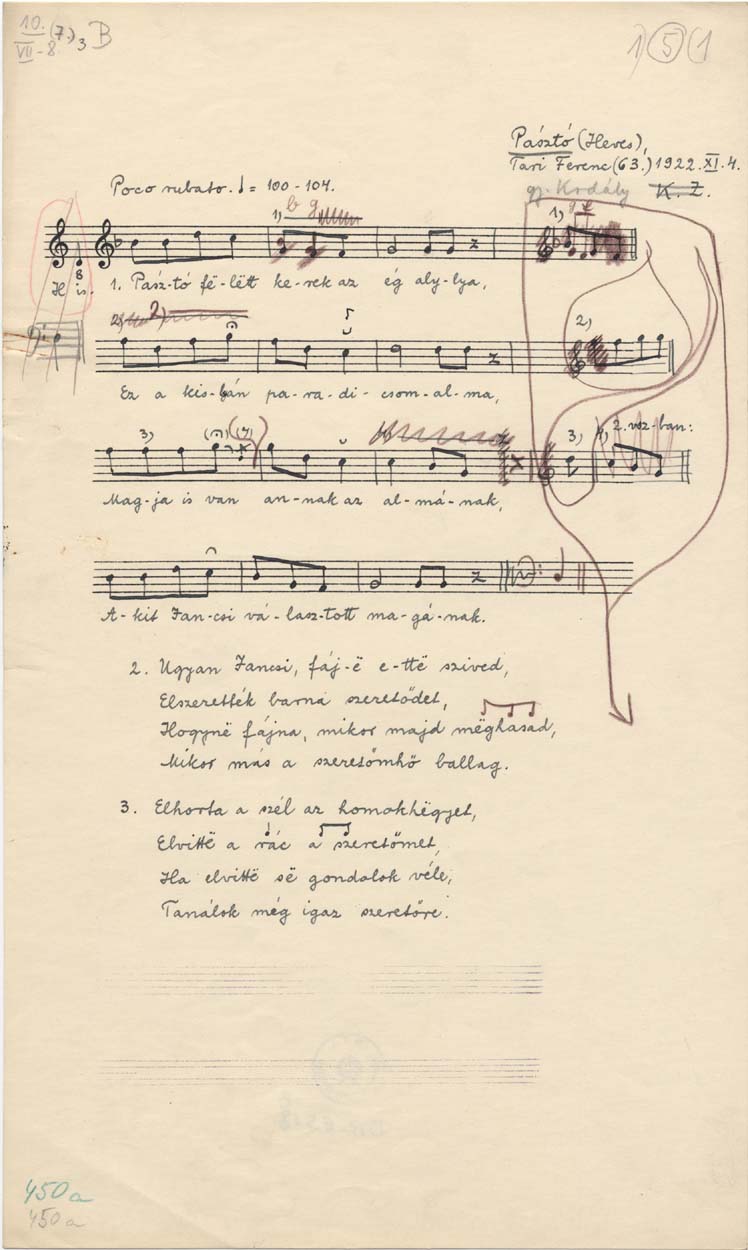 10. (7.) 3 B
VII - 8.
1) 5 (1
Pásztó (Heves),
Tari Ferenc (63.) 1922. XI. 4.
gy. Kodály K. Z.
Poco rubato. ♩= 100 - 104.
1) b g
1)
8
H is. 1. Pász-tó fë-lëtt ke-rek az ég aly-lya,
2) 2)
2)
Ez a kis-bán pa-ra-di-csom-al-ma,
3) (4)
3) 4) 2. vsz-ban:
Mag-ja is van an-nak az al-má-nak,
A-kit Jan-csi vá-lasz-tott ma-gá-nak.
2. Ugyan Jancsi, fáj-ë e-ttë szived,
Elszerették barna szeretődet,
Hogynë fájna, mikor majd mëghasad,
Mikor más a szeretőmhö ballag.
3. Elhorta a szél az homokhëgyet,
Elvittë a rác a szeretőmet,
Ha elvittë së gondolok véle,
Tanálok még igaz szeretőre.
450a
450a